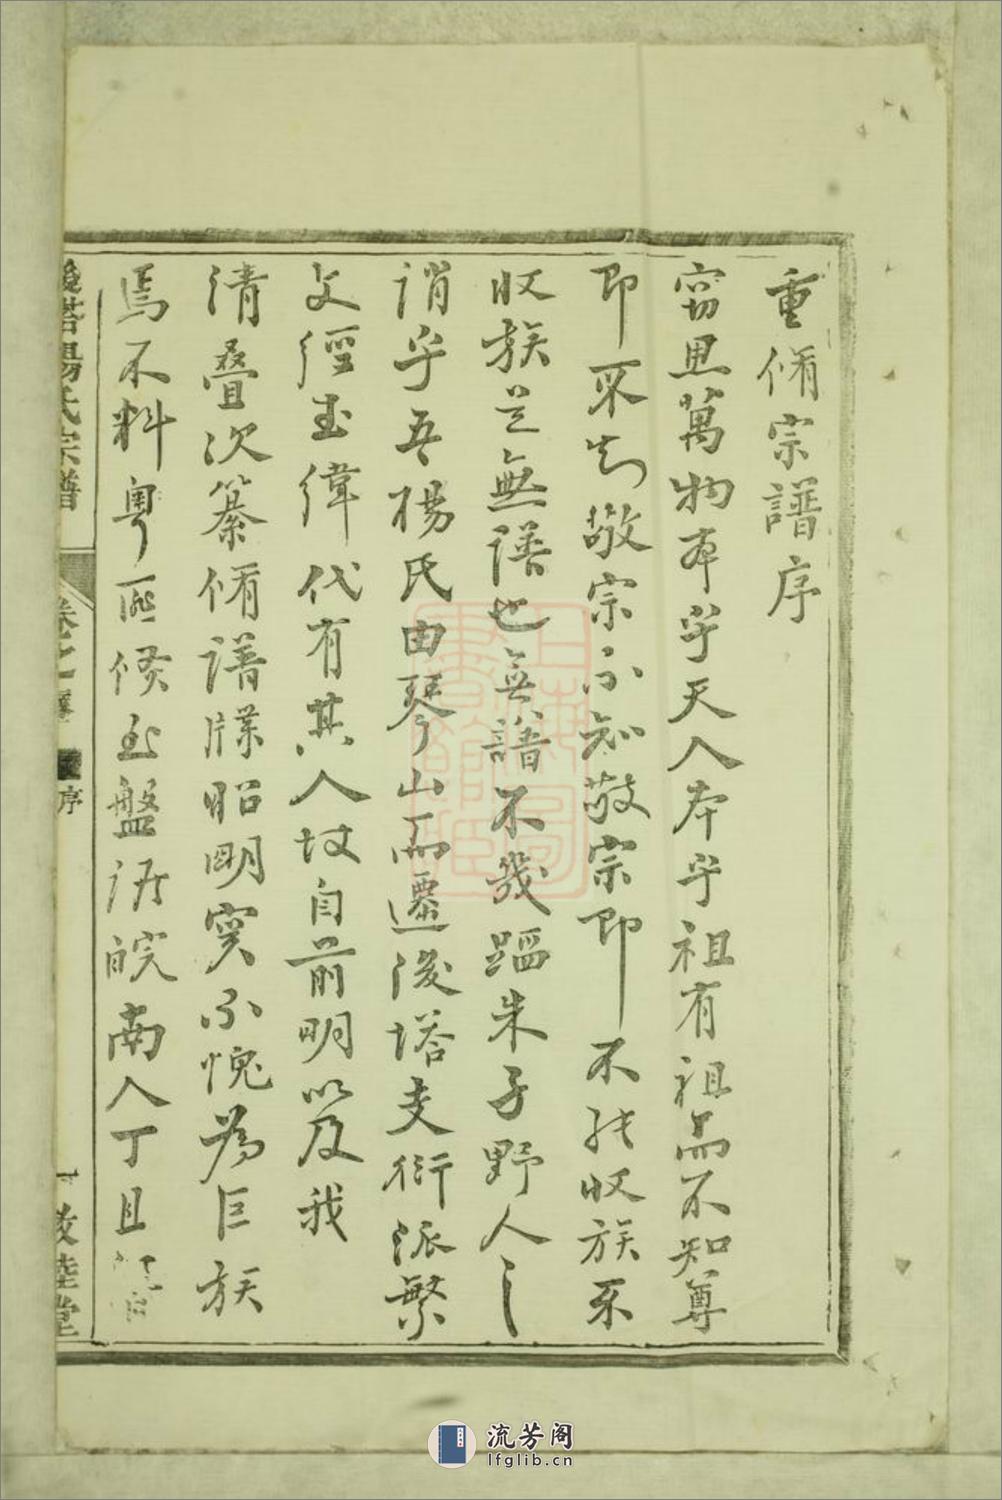 重脩宗譜序
竊思萬物本乎天人本乎祖有祖而不知尊
即不知敬宗不知敬宗即不能收族不
收族是無譜也無譜不幾蹈朱子野人之
誚乎吾楊氏由琴山而遷後塔支衍派繁
文經武緯代有其人故自前明以及我
清叠次纂脩譜牒昭明實不愧為巨族
焉不料粵匪倏至盤踞皖南人丁且
後塔楊氏宗譜
卷之 序
一 敦睦堂
上海圖書館藏
流芳阁
lfglib.cn